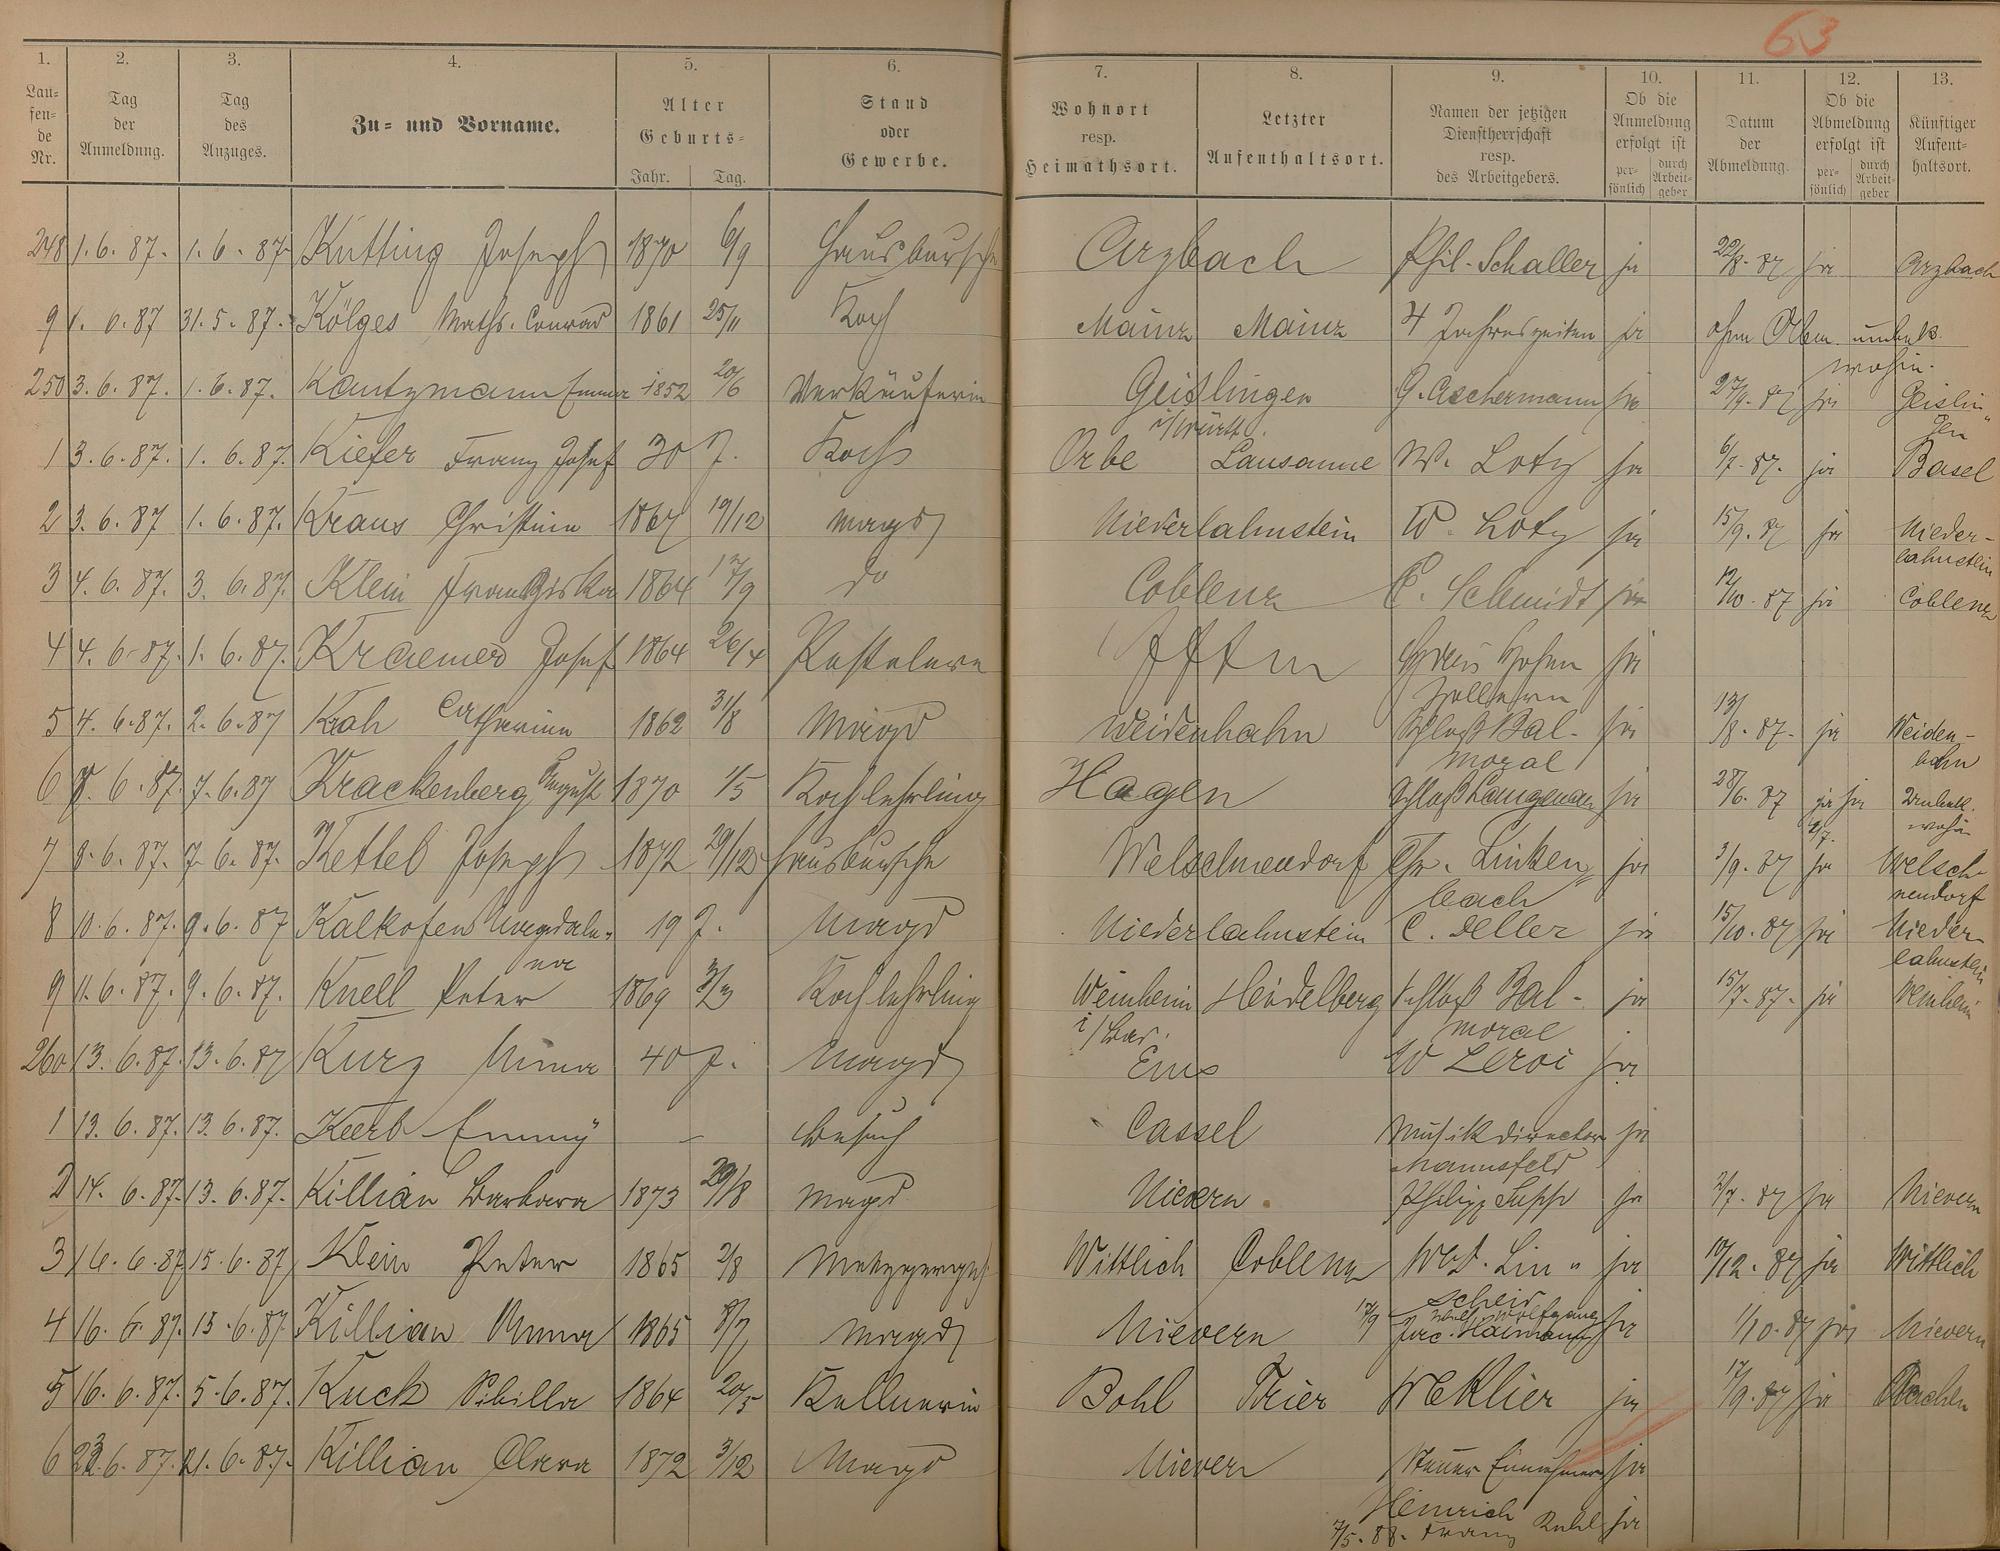 63
1. 2. 3. 4. 5. 6. 7. 8. 9. 10. 11. 12. 13.
Lau=
fen=
de
Nr.
Tag
der
Anmeldung.
Tag
des
Anzuges.
Zu= und Vorname.
Alter
Geburts=
Jahr. Tag.
Stand
oder
Gewerbe.
Wohnort
resp.
Heimathsort.
Letzter
Aufenthaltsort.
Namen der jetzigen
Dienstherrschaft
resp.
des Arbeitgebers.
Ob die
Anmeldung
erfolgt ist
per=
sönlich
durch
Arbeit=
geber
Datum
der
Abmeldung.
Ob die
Abmeldung
erfolgt ist
per=
sönlich
durch
Arbeit=
geber
Künftiger
Aufent=
haltsort.
248 1. 6. 87. 1. 6. 87. Kütting Joseph 1870 6/9 Hausbursche Arzbach Phil. Schaller ja 22/8. 87 ja Arzbach
9 1. 6. 87 31. 5. 87. Kölges Maths. Conrad 1861 25/11 Koch Mainz Mainz 4 Jahreszeiten ja ohne Abm. unbek.
wohin.
250 3. 6. 87. 1. 6. 87. Kantzmann Emma 1852 20/6 Verkäuferin Geislingen G. Aschermann ja 27/9. 87 ja Geislin"
i/Württ. gen
1 3. 6. 87. 1. 6. 87. Kiefer Franz Josef 30 J. Koch Orbe Lausanne W. Lotz ja 6/7. 87. ja Basel
2 3. 6. 87 1. 6. 87. Kraus Christine 1867 19/12 Magd Niederlahnstein W. Lotz ja 15/9. 87 ja Nieder-
lahnstein
3 4. 6. 87. 3. 6. 87. Klein Franziska 1864 17/9 do Coblenz C. Schmidt ja 12/10. 87 ja Coblenz
4 4. 6. 87. 1. 6. 87. Kraemer Josef 1864 26/4 ja
5 4. 6. 87. 2. 6. 87 Krah Catharina 1862 31/8 Magd Weidenhahn Schloß Bal- ja 13/8. 87. ja Weiden-
moral hahn
6 7. 6. 87. 7. 6. 87 Krackenberg August 1870 1/5 Kochlehrling Hagen Schloß Langenau ja 28/6. 87 ja ja Unbek.
2/7. wohin
7 8. 6. 87. 7. 6. 87. Kettel Joseph 1872 29/12 Hausbursche Welschneudorf Chr. Linken= ja 3/9. 87 ja Welsch-
bach neudorf
8 10. 6. 87. 9. 6. 87 Kalkofen Magdale- 19 J. Magd Niederlahnstein C. Deller ja 15/10. 87 ja Nieder-
na lahnstein
9 11. 6. 87. 9. 6. 87. Knell Peter 1869 Kochlehrling Weinheim Heidelberg Schloß Bal- ja 15/7. 87. ja Weinheim
i/Bad. moral
260 13. 6. 87. 13. 6. 87 Kurz Mina 40 J. Magd Ems W Leroi ja
1 13. 6. 87. 13. 6. 87. Emmy – Besuch Cassel Musikdirector ja
Mannsfeld
2 14. 6. 87. 13. 6. 87. Killian Barbara 1873 29/8 Magd Nievern Philipp ja 2/7. 87 ja Nievern
3 16. 6. 87 15. 6. 87 Klein Peter 1865 2/8 Metzgergeh Wittlich Coblenz Wd. Lin" ja 10/12. 87 ja Wittlich
scheid
4 16. 6. 87. 15. 6. 87 Killian Anna 1865 8/7 Magd Nievern 17/9 Wolfgang ja 1/10. 87 ja Nievern
Jac. Haimann
5 16. 6. 87. 5. 6. 87. Kuck Sibilla 1864 20/5 Kellnerin Bohl Trier Weklier ja 17/9. 87 ja Aachen
6 23. 6. 87. 21. 6. 87. Killian Clara 1872 3/12 Magd Nievern Steuer Einnehmer ja
Heinrich
7/5. 88. Franz Kuhl ja